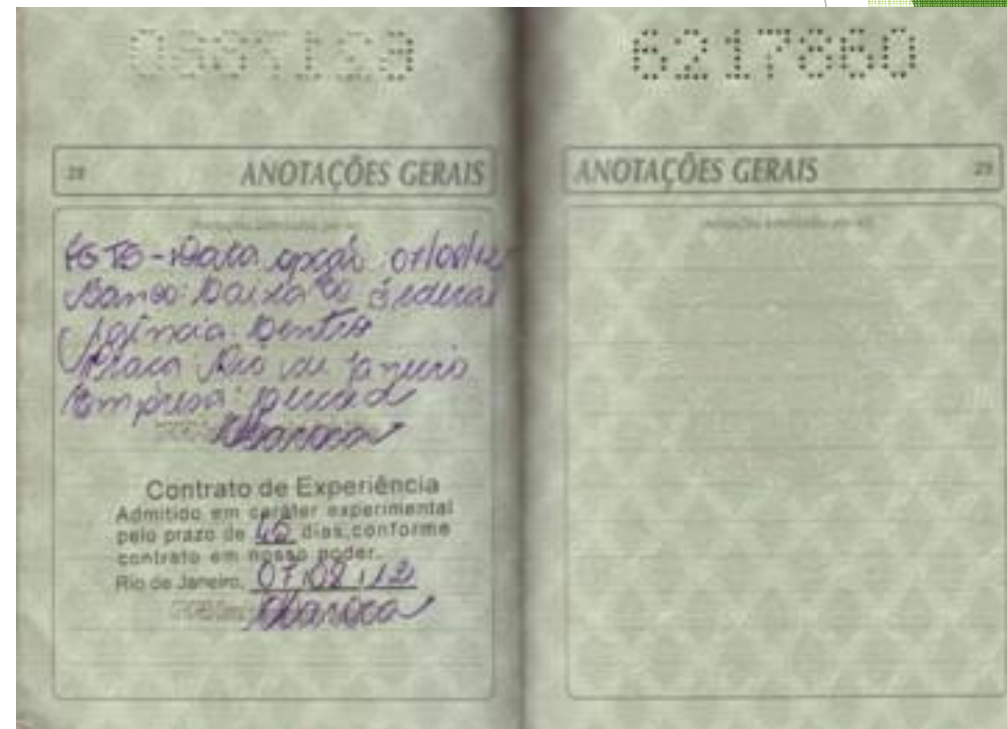 6217860
28 ANOTAÇÕES GERAIS
FGTS - Data opção 07/08/12
Banco Caixa Ec Federal
Agência Centro
Praça Rio de Janeiro
Empresa
Contrato de Experiência
Admitido em caráter experimental
pelo prazo de 45 dias, conforme
contrato em nosso poder.
Rio de Janeiro, 07/08/12
ANOTAÇÕES GERAIS 29